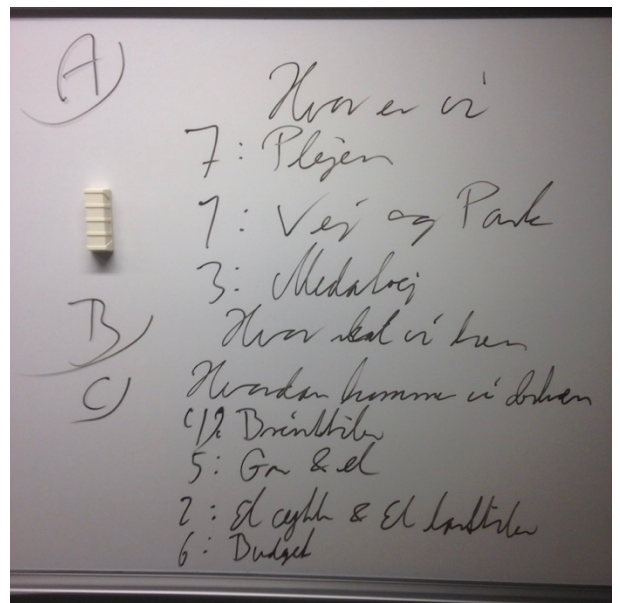 A) Hvor er vi
7: Plejen
1: Vej og Park
3:
B) Hvor skal vi hen
C) Hvordan komme vi derhen
Brintbiler
5: Gas & el
2: El cykle & El lastbiler
6: Budget